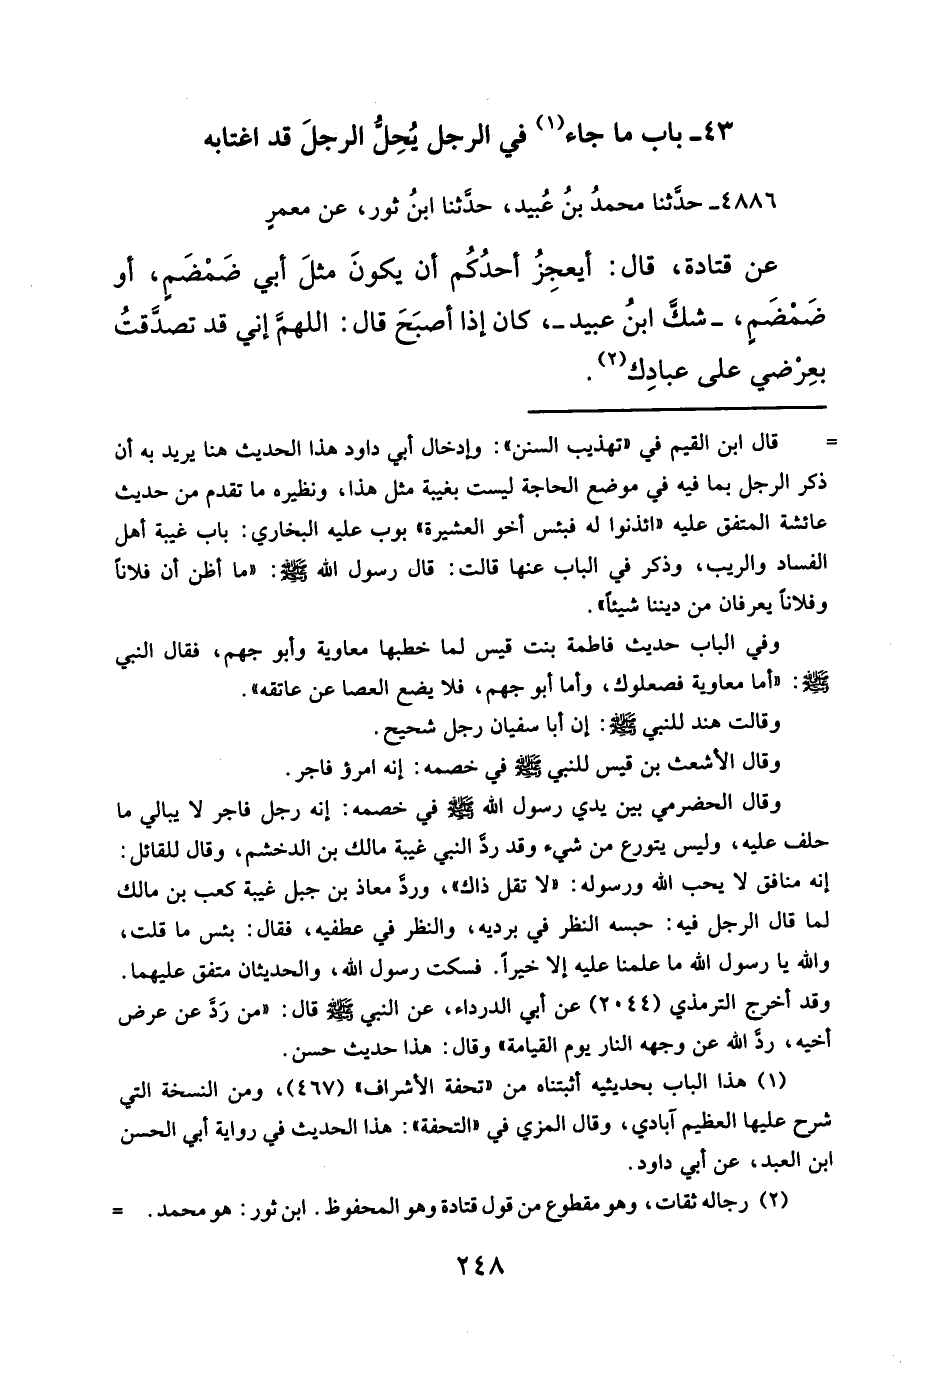 ٤٣ـ باب ما جاء(١) في الرجل يُحِلُّ الرجلَ قد اغتابه
٤٨٨٦ـ حدَّثنا محمدُ بنُ عُبيد، حدَّثنا ابنُ ثور، عن معمرٍ
عن قتادة، قال: أيعجِزُ أحدُكُم أن يكونَ مثلَ أبي ضَمْضَمٍ، أو
ضَمْضَمٍ، ـ شكَّ ابنُ عبيد ـ، كان إذا أصبَحَ قال: اللهمَّ إني قد تصدَّقتُ
بعِرْضي على عبادِك(٢).
= قال ابن القيم في «تهذيب السنن»: وإدخال أبي داود هذا الحديث هنا يريد به أن
ذكر الرجل بما فيه في موضع الحاجة ليست بغيبة مثل هذا، ونظيره ما تقدم من حديث
عائشة المتفق عليه «ائذنوا له فبئس أخو العشيرة» بوب عليه البخاري: باب غيبة أهل
الفساد والريب، وذكر في الباب عنها قالت: قال رسول الله ﷺ: «ما أظن أن فلاناً
وفلاناً يعرفان من ديننا شيئاً».
وفي الباب حديث فاطمة بنت قيس لما خطبها معاوية وأبو جهم، فقال النبي
ﷺ: «أما معاوية فصعلوك، وأما أبو جهم، فلا يضع العصا عن عاتقه».
وقالت هند للنبي ﷺ: إن أبا سفيان رجل شحيح.
وقال الأشعث بن قيس للنبي ﷺ في خصمه: إنه امرؤ فاجر.
وقال الحضرمي بين يدي رسول الله ﷺ في خصمه: إنه رجل فاجر لا يبالي ما
حلف عليه، وليس يتورع من شيء وقد ردَّ النبي غيبة مالك بن الدخشم، وقال للقائل:
إنه منافق لا يحب الله ورسوله: «لا تقل ذاك»، وردَّ معاذ بن جبل غيبة كعب بن مالك
لما قال الرجل فيه: حبسه النظر في برديه، والنظر في عطفيه، فقال: بئس ما قلت،
والله يا رسول الله ما علمنا عليه إلا خيراً. فسكت رسول الله، والحديثان متفق عليهما.
وقد أخرج الترمذي (٢٠٤٤) عن أبي الدرداء، عن النبي ﷺ قال: «من رَدَّ عن عرض
أخيه، ردَّ الله عن وجهه النار يوم القيامة» وقال: هذا حديث حسن.
(١) هذا الباب بحديثيه أثبتناه من «تحفة الأشراف» (٤٦٧)، ومن النسخة التي
شرح عليها العظيم آبادي، وقال المزي في «التحفة»: هذا الحديث في رواية أبي الحسن
ابن العبد، عن أبي داود.
(٢) رجاله ثقات، وهو مقطوع من قول قتادة وهو المحفوظ. ابن ثور: هو محمد. =
٢٤٨